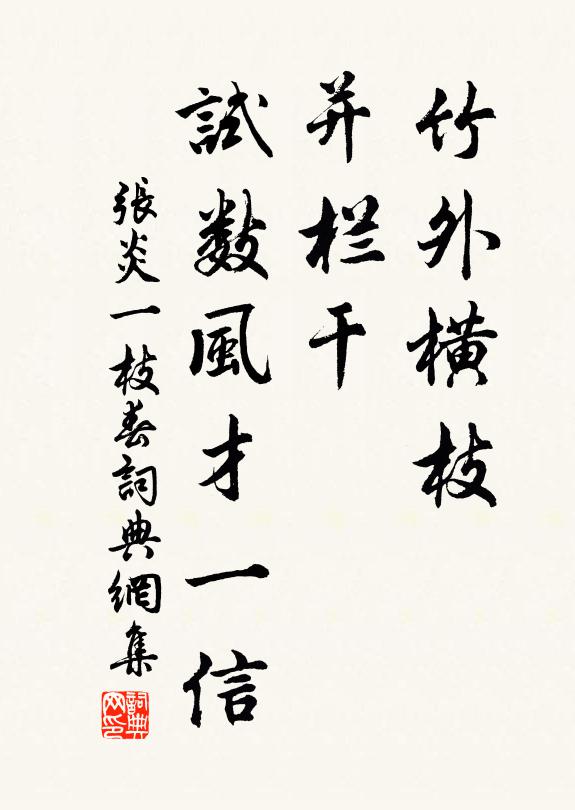 竹外橫枝
并栏干
試數風才一信
張炎一枝春詞典網集
詞典网印